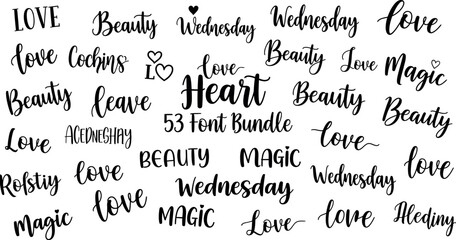 LOVE Beauty Wednesday Wednesday love
love Cochins LO love Beauty Love Magic
Beauty leave Heart Beauty Beauty
Love ACEDNEGHAY 53 Font Bundle love
Rofstiy love BEAUTY MAGIC Wednesday love
Magic love Wednesday
MAGIC Love love Alediny